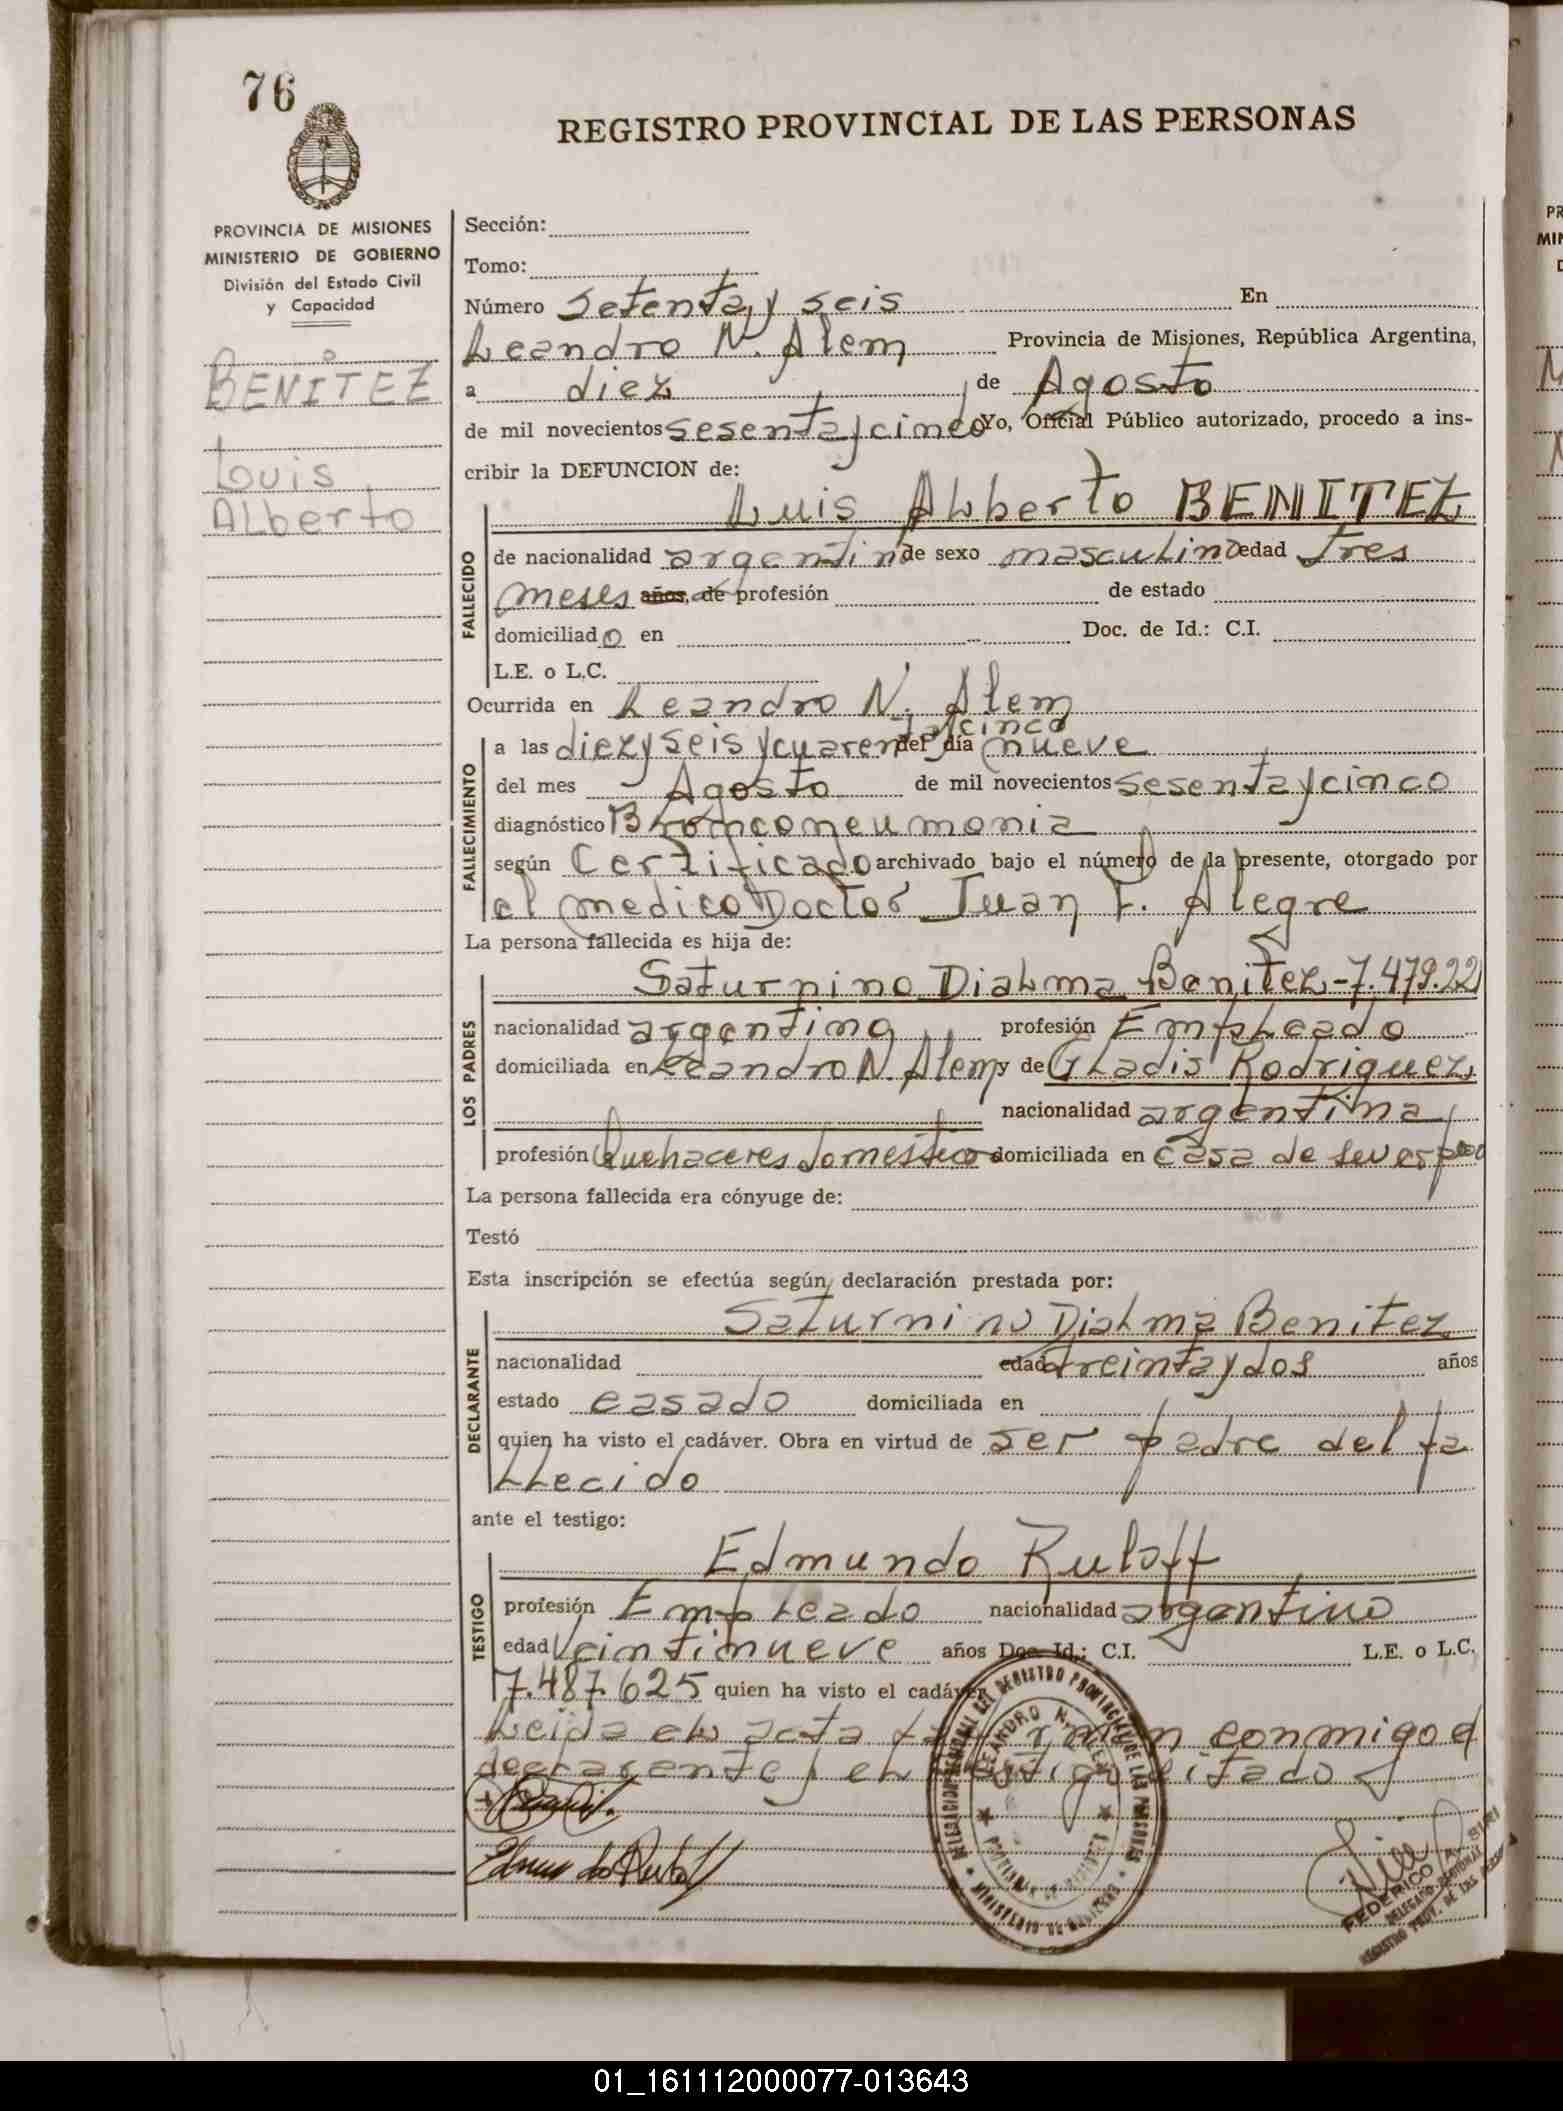 76
REGISTRO PROVINCIAL DE LAS PERSONAS
PROVINCIA DE MISIONES
MINISTERIO DE GOBIERNO
División del Estado Civil
y Capacidad
BENITEZ
Luis
ALberto
Sección:
Tomo:
Número Setenta y seis En
Leandro N. Alem Provincia de Misiones, República Argentina,
a diez de Agosto
de mil novecientos sesenta y cinco Yo, Oficial Público autorizado, procedo a ins-
cribir la DEFUNCION de:
Luis Alberto BENITEZ
FALLECIDO
de nacionalidad argentino de sexo masculino edad tres
meses años, de profesión de estado
domiciliado en Doc. de Id.: C.I.
L.E. o L.C.
Ocurrida en Leandro N. Alem
FALLECIMIENTO
a las diez y seis y cuarenta y cinco del día nueve
del mes Agosto de mil novecientos sesenta y cinco
diagnóstico Bronconeumonia
según Certificado archivado bajo el número de la presente, otorgado por
el medico Doctor Juan P. Alegre
La persona fallecida es hija de:
LOS PADRES
Saturnino Dialma Benitez-7.479.22
nacionalidad argentino profesión Empleado
domiciliada en Leandro N. Alem y de Gladis Rodriguez
nacionalidad argentina
profesión Quehaceres domestico domiciliada en casa de su esposo
La persona fallecida era cónyuge de:
Testó
Esta inscripción se efectúa según declaración prestada por:
DECLARANTE
Saturnino Dialma Benitez
nacionalidad edad treinta y dos años
estado casado domiciliada en
quien ha visto el cadáver. Obra en virtud de ser padre del fa
llecido
ante el testigo:
TESTIGO
Edmundo Ruloff
profesión Empleado nacionalidad argentino
edad Veintinueve años Doc. Id.: C.I. L.E. o L.C.
7.487.625 quien ha visto el cadáver
Leida el acta la firman conmigo el
declarente y el testigo citado
DELEGACION REGIONAL DEL REGISTRO PROVINCIAL DE LAS PERSONAS
LEANDRO N. ALEM
PROVINCIA DE MISIONES
Edmundo Ruloff
FEDERICO A. SIRI
DELEGADO REGIONAL
REGISTRO PROV. DE LAS PERSONAS
PR
MIN
D
01_161112000077-013643